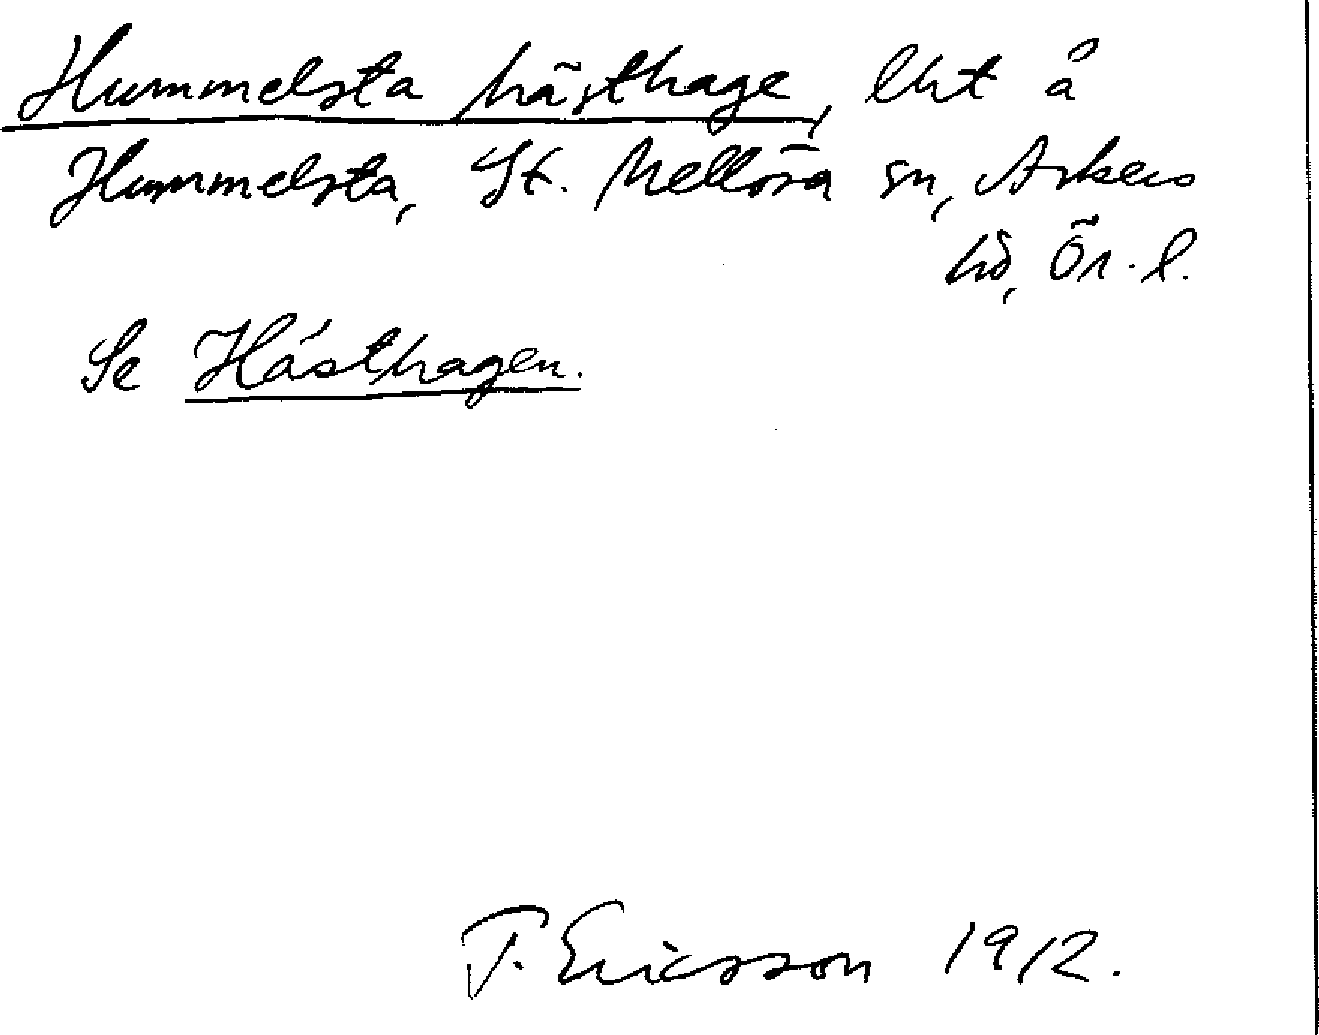 Hummelsta hästhage, lht å
Hummelsta, St. Mellösa sn, Askers
hd, Ör. l.
Se Hästhagen.
T. Ericsson 1912.